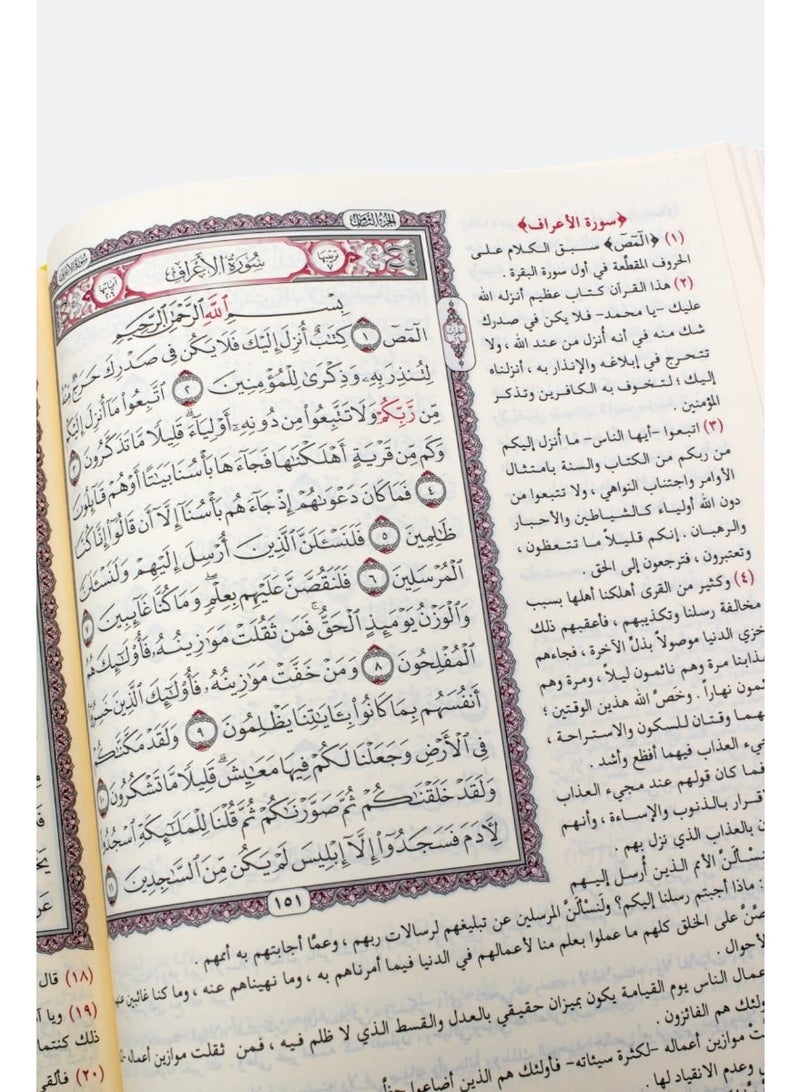 الجزء الثامن
سُورَةُ الأَعْرَافِ
ترتيبها ٧
آياتها ٢٠٦
بِسْمِ ٱللَّهِ ٱلرَّحْمَٰنِ ٱلرَّحِيمِ
الٓمٓصٓ ١ كِتَٰبٌ أُنزِلَ إِلَيْكَ فَلَا يَكُن فِى صَدْرِكَ حَرَجٌ مِّنْهُ
لِتُنذِرَ بِهِۦ وَذِكْرَىٰ لِلْمُؤْمِنِينَ ٢ ٱتَّبِعُوا۟ مَآ أُنزِلَ إِلَيْكُم
مِّن رَّبِّكُمْ وَلَا تَتَّبِعُوا۟ مِن دُونِهِۦٓ أَوْلِيَآءَ ۗ قَلِيلًا مَّا تَذَكَّرُونَ ٣
وَكَم مِّن قَرْيَةٍ أَهْلَكْنَٰهَا فَجَآءَهَا بَأْسُنَا بَيَٰتًا أَوْ هُمْ قَآئِلُونَ
٤ فَمَا كَانَ دَعْوَىٰهُمْ إِذْ جَآءَهُم بَأْسُنَآ إِلَّآ أَن قَالُوٓا۟ إِنَّا كُنَّا
ظَٰلِمِينَ ٥ فَلَنَسْـَٔلَنَّ ٱلَّذِينَ أُرْسِلَ إِلَيْهِمْ وَلَنَسْـَٔلَنَّ
ٱلْمُرْسَلِينَ ٦ فَلَنَقُصَّنَّ عَلَيْهِم بِعِلْمٍ ۖ وَمَا كُنَّا غَآئِبِينَ ٧
وَٱلْوَزْنُ يَوْمَئِذٍ ٱلْحَقُّ ۚ فَمَن ثَقُلَتْ مَوَٰزِينُهُۥ فَأُو۟لَٰٓئِكَ هُمُ
ٱلْمُفْلِحُونَ ٨ وَمَنْ خَفَّتْ مَوَٰزِينُهُۥ فَأُو۟لَٰٓئِكَ ٱلَّذِينَ خَسِرُوٓا۟
أَنفُسَهُم بِمَا كَانُوا۟ بِـَٔايَٰتِنَا يَظْلِمُونَ ٩ وَلَقَدْ مَكَّنَّٰكُمْ
فِى ٱلْأَرْضِ وَجَعَلْنَا لَكُمْ فِيهَا مَعَٰيِشَ ۗ قَلِيلًا مَّا تَشْكُرُونَ ١٠
وَلَقَدْ خَلَقْنَٰكُمْ ثُمَّ صَوَّرْنَٰكُمْ ثُمَّ قُلْنَا لِلْمَلَٰٓئِكَةِ ٱسْجُدُوا۟
لِـَٔادَمَ فَسَجَدُوٓا۟ إِلَّآ إِبْلِيسَ لَمْ يَكُن مِّنَ ٱلسَّٰجِدِينَ ١١
١٥١
﴿سورة الأعراف﴾
(١) ﴿الٓمٓصٓ﴾ سبق الكلام على
الحروف المقطّعة في أول سورة البقرة .
(٢) هذا القرآن كتاب عظيم أنزله الله
عليك -يا محمد- فلا يكن في صدرك
شك منه في أنه أنزل من عند الله ، ولا
تتحرج في إبلاغه والإنذار به ، أنزلناه
إليك ؛ لتخوف به الكافرين وتذكر
المؤمنين .
(٣) اتبعوا -أيها الناس- ما أُنزل إليكم
من ربكم من الكتاب والسنة بامتثال
الأوامر واجتناب النواهي ، ولا تتبعوا من
دون الله أولياء كالشياطين والأحبار
والرهبان . إنكم قليلاً ما تتعظون ،
وتعتبرون ، فترجعون إلى الحق .
(٤) وكثير من القرى أهلكنا أهلها بسبب
مخالفة رسلنا وتكذيبهم ، فأعقبهم ذلك
خزي الدنيا موصولاً بذلِّ الآخرة ، فجاءهم
عذابنا مرة وهم نائمون ليلاً ، ومرة وهم
نهاراً . وخصَّ الله هذين الوقتين ؛
وقتان للسكون والاستراحة ،
العذاب فيهما أفظع وأشد .
فما كان قولهم عند مجيء العذاب
بالذنوب والإساءة ، وأنهم
بالعذاب الذي نزل بهم .
الأمم الذين أرسل إليهم
: ماذا أجبتم رسلنا إليكم؟ ولَنَسْألَنَّ المرسلين عن تبليغهم لرسالات ربهم ، وعمَّا أجابتهم به أممهم .
على الخلق كلهم ما عملوا بعلم منا لأعمالهم في الدنيا فيما أمرناهم به ، وما نهيناهم عنه ، وما كنا غائبين
الأحوال .
الناس يوم القيامة يكون بميزان حقيقي بالعدل والقسط الذي لا ظلم فيه ، فمن ثقلت موازين أعماله
هم الفائزون .
موازين أعماله -لكثرة سيئاته- فأولئك هم الذين أضاعوا
وعدم الانقياد لها .
(١٨) قال
(١٩) ويا
ذلك كنتما
(٢٠) فألقى